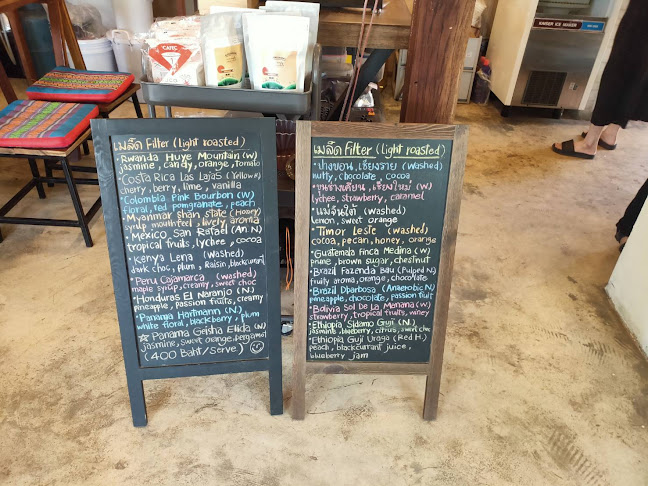 CAFE
KINGER ICE MAKER
เมล็ด Filter (Light roasted)
Rwanda Huye Mountain (W)
jasmine, candy, orange, tomato
Costa Rica Las Lajas (Yellow H)
cherry, berry, lime, vanilla
•Colombia Pink Bourbon (W)
Floral, red pomegranate, peach
Myanmar Shan State (Honey)
syrup mouthfeel, lively aroma
• Mexico San Rafael (An. N)
tropical fruits, lychee, cocoa
•Kenya Lena (Washed)
dark choc, plum, Raisin, blackcurrant
•Peru Cajamarca (washed)
maple syrup, creamy, sweet choc
•Honduras El Naranjo (N)
pineapple, passion fruits, creamy
•Panama Hartmann (N)
white floral, blackberry, plum
☆ Panama Geisha Elida (N)
jasmine, sweet orange, bergamot
(400 Baht/Serve) ☺
เมล็ด Filter (Light roasted)
•ปางขอน, เชียงราย (Washed)
nutty, chocolate, cocoa
•ขุนช่างเคี่ยน, เชียงใหม่ (W)
lychee, strawberry, caramel
•แม่จันใต้ (washed)
lemon, sweet orange
•Timor Leste (washed)
cocoa, pecan, honey, orange
•Guatemala Finca Medina (W)
prune, brown sugar, chestnut
•Brazil Fazenda Bau (Pulped N)
fruity aroma, orange, chocolate
•Brazil Dbarbosa (Anaerobic N)
pineapple, chocolate, passion fruit
•Bolivia Sol De La Manana (W)
strawberry, tropical fruits, winey
•Ethiopia Sidamo Guji (N)
jasmine, blueberry, citrus, dark choc
•Ethiopia Guji Uraga (Red H.)
peach, blackcurrant juice,
blueberry jam